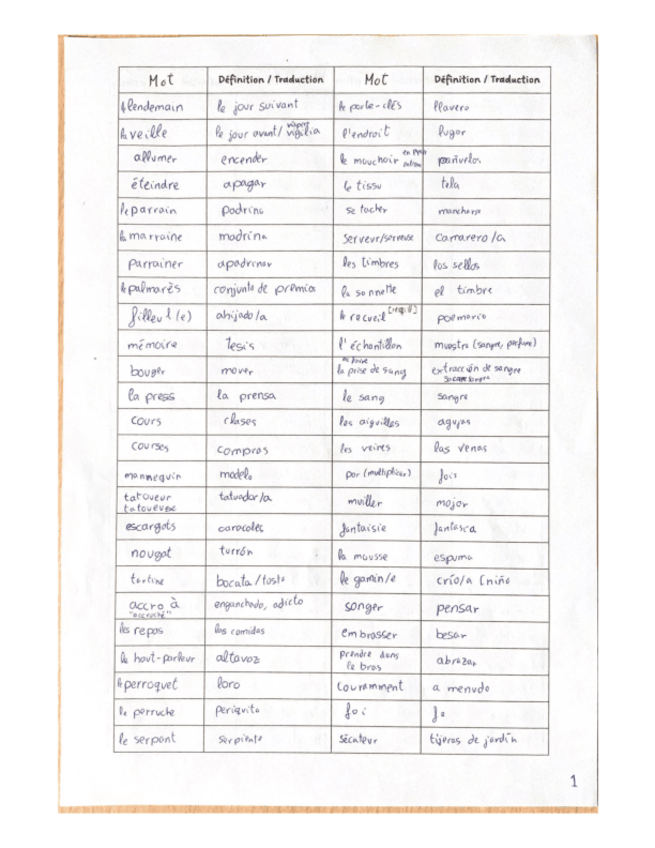 Mot Définition / Traduction Mot Définition / Traduction
lendemain le jour suivant le porte-clés llavero
la veille le jour avant/ víspera vigilia l'endroit lugar
allumer encender le mouchoir en papier pañuelos
éteindre apagar le tissu tela
le parrain padrino se tacher mancharse
la marraine madrina serveur/serveuse camarero/a
parrainer apadrinar les timbres los sellos
le palmarès conjunto de premios la sonnette el timbre
filleul(e) ahijado/a le recueil poemario
mémoire tesis l'échantillon muestra (sangre, perfume)
bouger mover la prise de sang extracción de sangre
la press la prensa le sang sangre
cours clases les aiguilles agujas
courses compras les veines las venas
mannequin modelo por (multiplicar) fois
tatoueur tatoueuse tatuador/a muiller mojar
escargots caracoles fantaisie fantasía
nougat turrón la mousse espuma
tartine bocata/tosta le gamin/e crío/a (niño
accro à "accroché" enganchado, adicto songer pensar
les repas las comidas embrasser besar
le haut-parleur altavoz prendre dans le bras abrazar
le perroquet loro couramment a menudo
la perruche periquito foi fe
le serpent serpiente sécateur tijeras de jardín
1